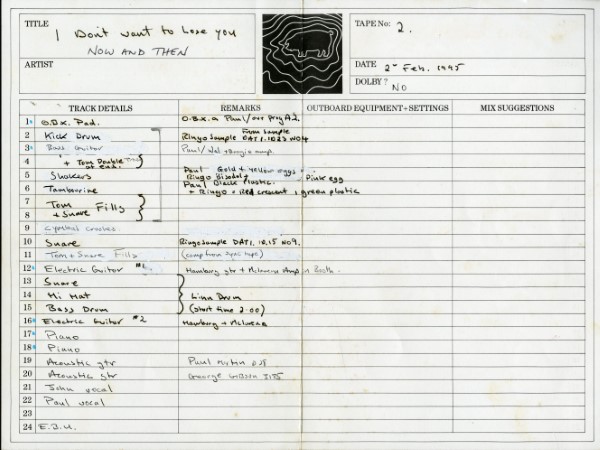 TITLE
I Don't want to Lose you
NOW AND THEN
ARTIST
TAPE No: 2.
DATE 2nd Feb. 1995
DOLBY? NO
TRACK DETAILS REMARKS OUTBOARD EQUIPMENT+SETTINGS MIX SUGGESTIONS
1 O.B.X. Pad. O.B.X.a Paul/ prog A2.
2 Kick Drum Ringo Sample From sample DAT 1. 1023 NO4
3 Bass Guitar Paul/ amp.
4 + Tom Double Time at end.
5 Shakers Paul Gold + Yellow eggs Ringo + Pink egg
6 Tambourine Paul Black Plastic. + Ringo = Red crescent + green plastic
7 Tom Fills
8 + Snare
9 Cymbal crashes
10 Snare Ringo Sample DAT 1. 10.15 NO9.
11 Tom + Snare Fills (comp from sync tape)
12 Electric Guitar #1. Hamburg gtr + McInerne Amp in Booth.
13 Snare
14 Hi Hat Linn Drum
15 Bass Drum (Start time 2.00)
16 Electric Guitar #2 Hamburg + McInerne
17 Piano
18 Piano
19 Acoustic gtr Paul
20 Acoustic gtr George Gibson
21 John vocal
22 Paul vocal
23
24 E.B.U.